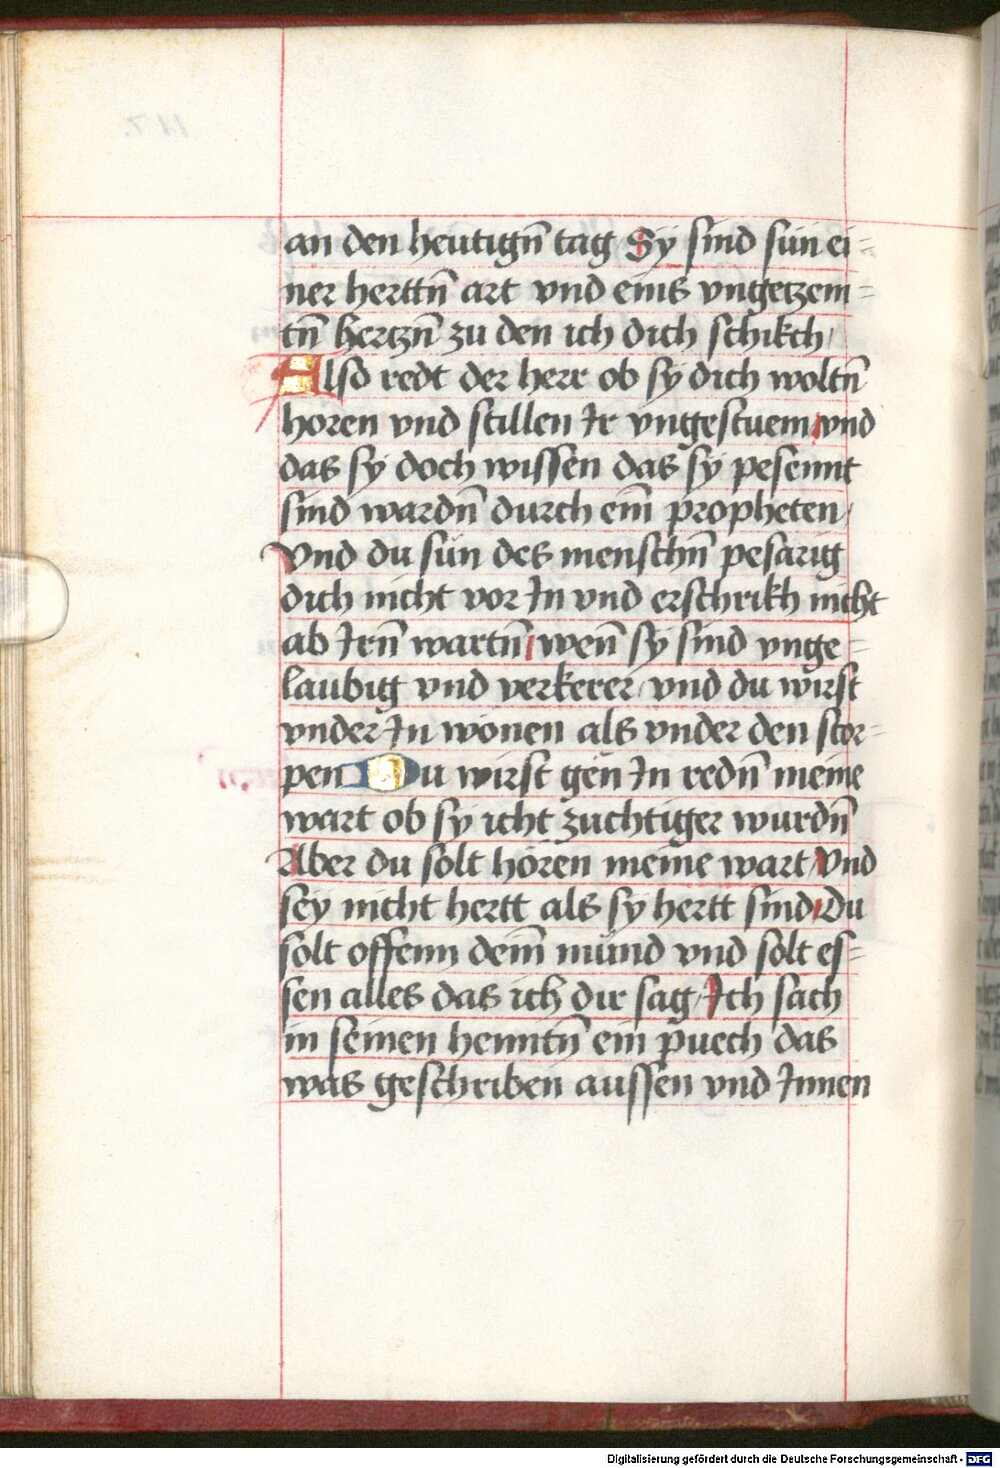 an den heutign̄ tag Sy sind sün ei=
ner herttn̄ art vnd eins vngetzem=
tn̄ hertzn̄ zu den ich dich schikch/
Also redt der herr ob sy dich woltn̄
horen vnd stillen Ir vngestuem/vnd
das sy doch wissen das sy pesennt
sind wardn̄ durch eim̄ propheten/
Vnd du sün des menschn̄ pesarig
dich nicht vor In vnd erschrikh nicht
ab Irn̄ wartn̄/wen̄ sy sind vnge=
laubig vnd verkerer/vnd du wirst
vnder In wonen als vnder den scor=
pen Du wirst gen In redn̄ meine
wart ob sy icht zuchtiger wurdn̄
Aber du solt hören meine wart/Vnd
sey nicht hertt als sy hertt sind/Du
solt offenn deim̄ mund vnd solt es=
sen alles das ich dir sag/Ich sach
in seinen henntn̄ ein puech das
was geschriben aussen vnd Innen
Digitalisierung gefördert durch die Deutsche Forschungsgemeinschaft - DFG